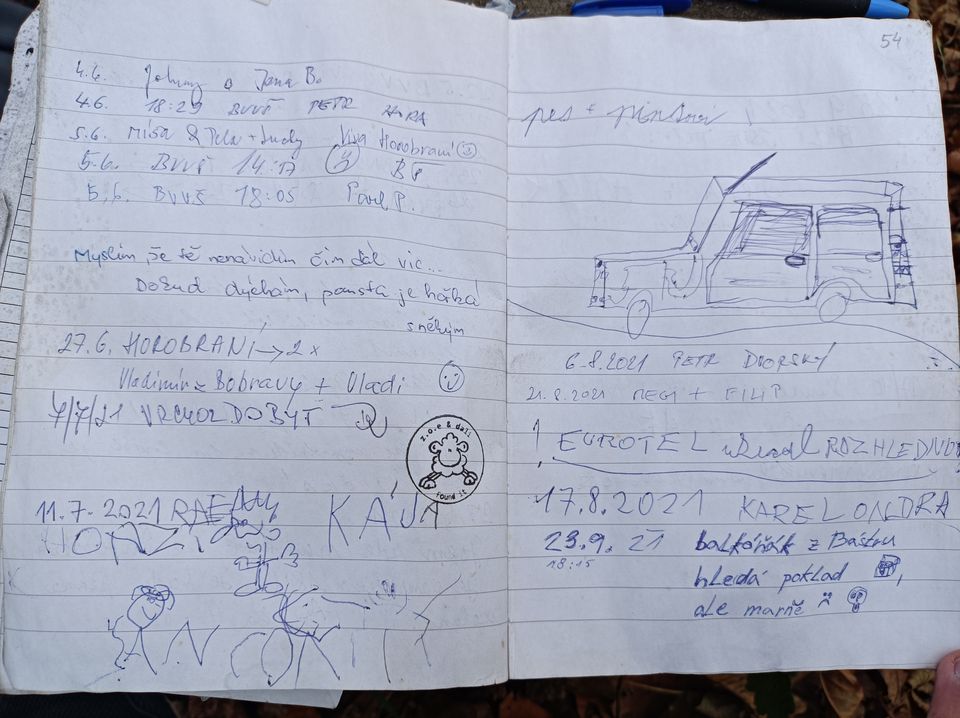 4.6. Johnny a Jana B.
4.6. 18:29 BVVŠ PETR HORA
5.6. Míša & + Ludy Viva Horobraní
5.6. BVVŠ 14:17
5.6. BVVŠ 18:05 Pavel P.
Myslím že tě nenávidím čím dál víc...
Dokud dýchám, pomsta je hořká
s někým
27.6. HOROBRANÍ → 2x
Vladimír z Bobravy + Vladi
7/7/21 VRCHOL DOBYT
z.o.e & dali
found it
11.7.2021
HONZ
KÁJA
54
pes +
6.8.2021 PETR DVORSKÝ
21.8.2021 MEGI + FILIP
! EUROTEL ukradl ROZHLEDNU
17.8.2021 KAREL ONDRA
23.9.21 balkóňák z
18:15
hledá poklad ,
ale marně